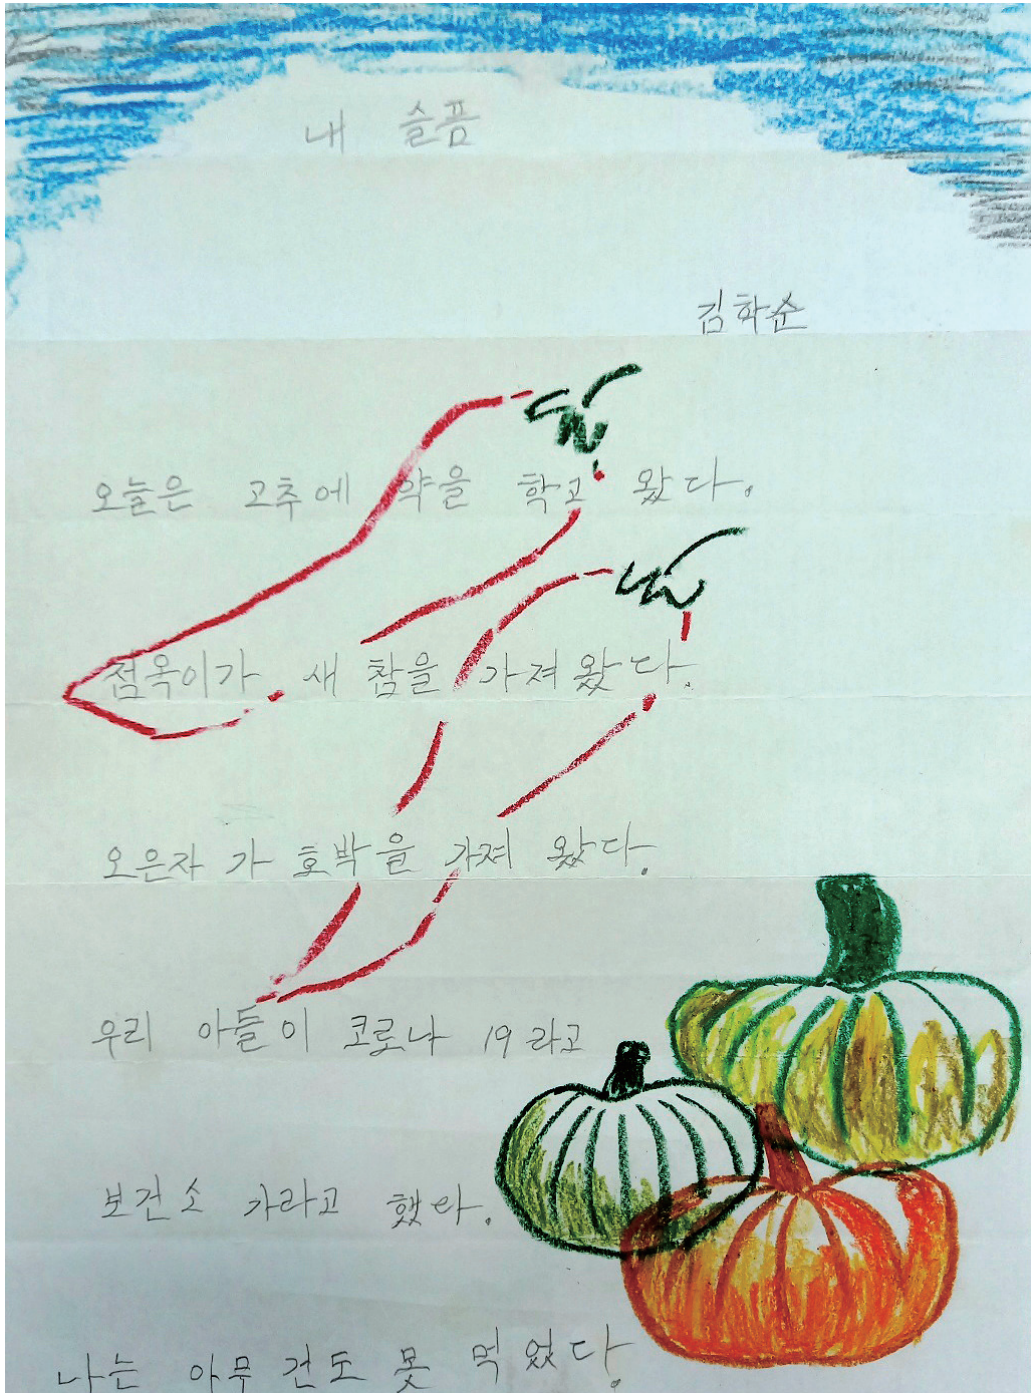 내 슬픔
김학순
오늘은 고추에 약을 학고 왔다.
점옥이가 새 참을 가져왔다.
오은자 가 호박을 가져 왔다.
우리 아들이 코로나 19 라고
보건소 가라고 했다.
나는 아무 건도 못 먹었다.